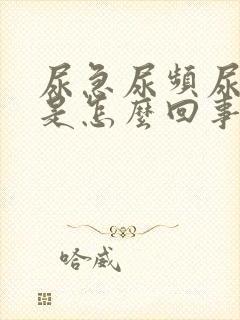 尿急尿頻尿
是怎麼回事
哈威